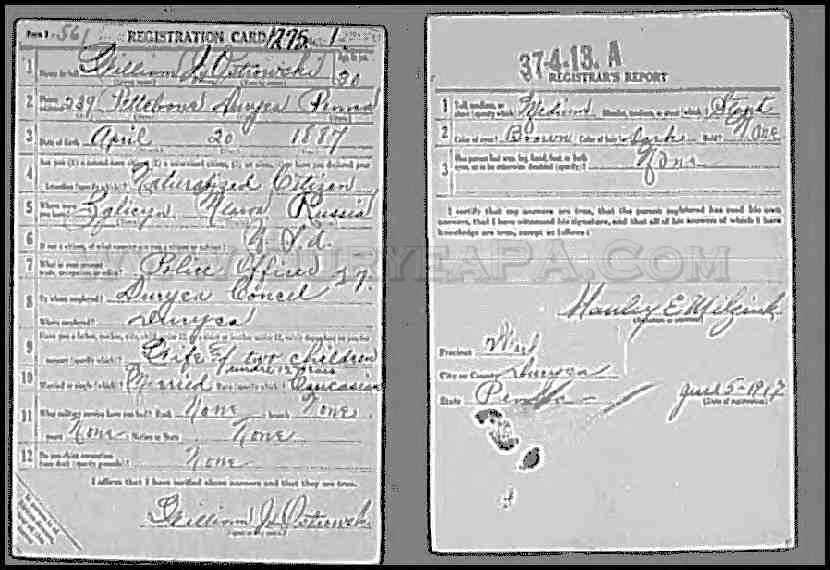 Form 1 561 REGISTRATION CARD 1275 1
1 Name in full William J. Ostrowski Age, in yrs. 30
2 Home 239 Pettebone Duryea Penna
3 Date of birth April 20 1887
4 Naturalized Citizen
intention (specify which)?
5 Where were you born? Russia
6 If not a citizen, of what country are you a citizen or subject?
7 What is your present trade, occupation, or office? Police Officer
8 By whom employed? Duryea Concel
Where employed? Duryea
9 Have you a father, mother, wife, child under 12, or a sister or brother under 12, solely dependent on you for
support (specify which)? Wife & two children
under 12 years
10 Married or single (which)? Married Race (specify which)? Caucasian
11 What military service have you had? Rank None branch None
years None Nation or State None
12 Do you claim exemption from draft (specify grounds)? None
I affirm that I have verified above answers and that they are true.
William J. Ostrowski
37-4-13. A
REGISTRAR'S REPORT
1 Tall, medium, or short (specify which)? Medium Slender, medium, or stout (which)? Stout
2 Color of eyes? Brown Color of hair? Dark Bald? None
3 Has person lost arm, leg, hand, foot, or both eyes, or is he otherwise disabled (specify)? None
I certify that my answers are true, that the person registered has read his own
answers, that I have witnessed his signature, and that all of his answers of which I have
knowledge are true, except as follows:
WWW.DURYEAPA.COM
Stanley E.
(Signature of registrar)
Precinct
City or County Duryea
State Penna June 5-1917
(Date of registration)